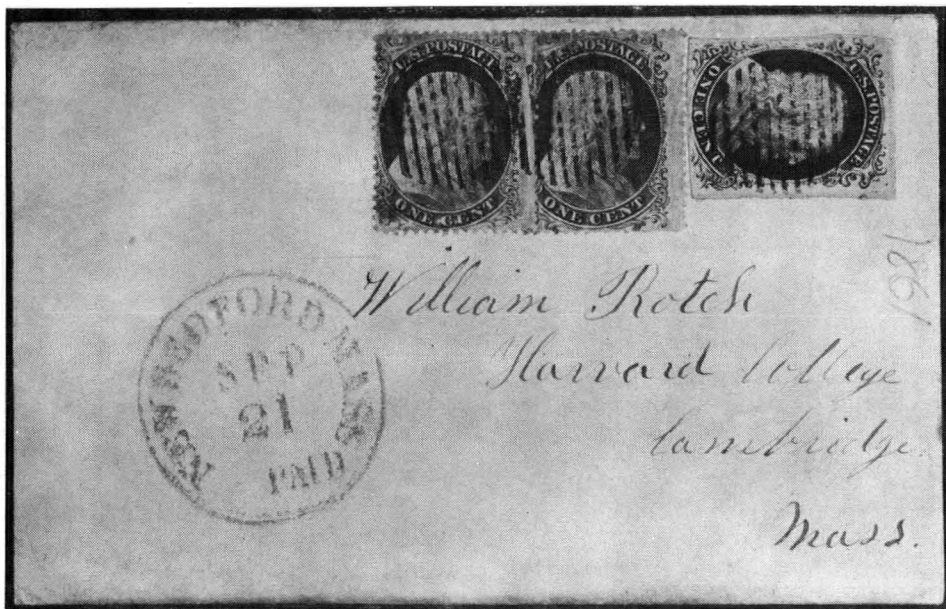 U.S. POSTAGE
ONE CENT
U.S. POSTAGE
ONE CENT
U.S. POSTAGE
ONE CENT
1861
NEW BEDFORD MASS
SEP
21
PAID
William Rotch
Harvard College
Cambridge.
Mass.